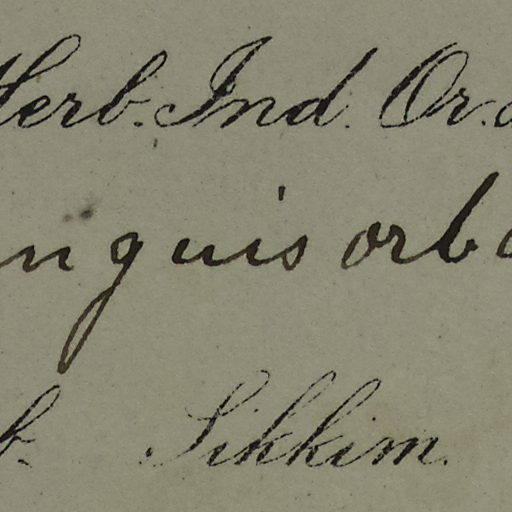 Herb. Ind. Or.
nguisorb
b. Sikkim.